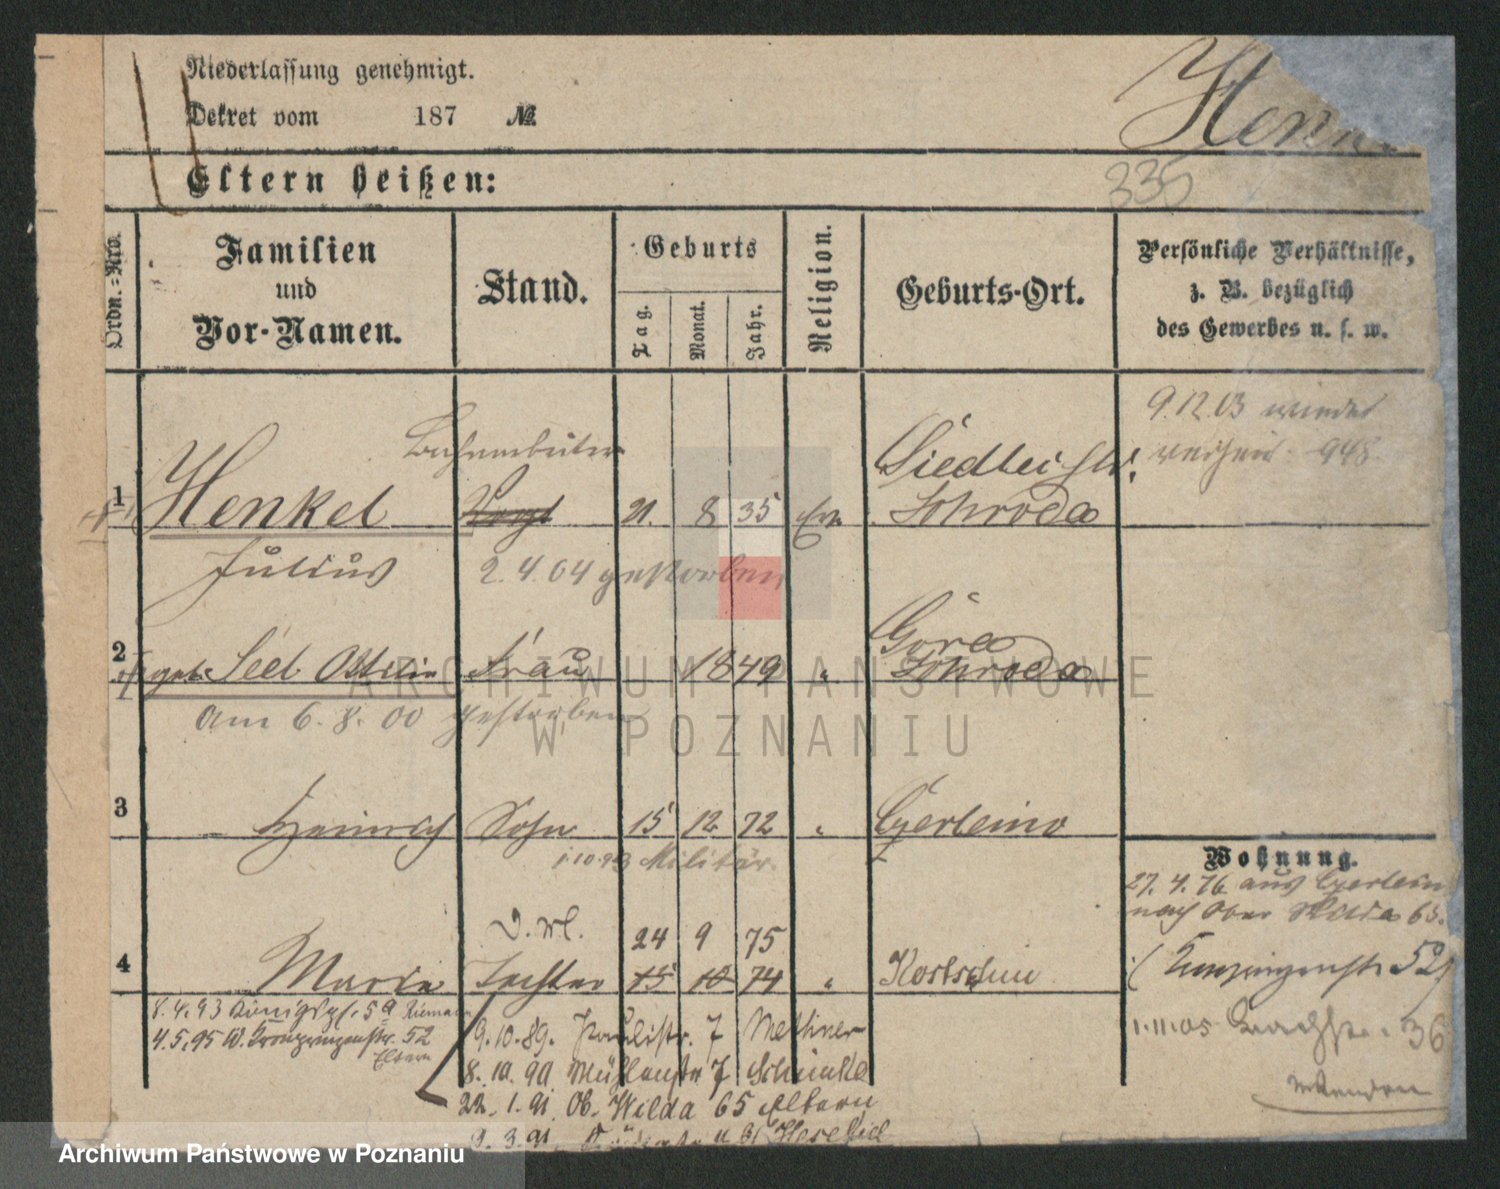 Niederlassung genehmigt.
Dekret vom 187 №
Henk
335
Eltern heißen:
Ordn.-Nro.
Familien
und
Vor-Namen.
Stand.
Geburts
Tag.
Monat.
Jahr.
Religion.
Geburts-Ort.
Persönliche Verhältnisse,
z. B. bezüglich
des Gewerbes u. s. w.
9.12.03 wieder
948
1 Henkel Vogt 21. 8 35 Ev. Schroda
Julius 2.4.04 gestorben
Gora
2 geb. Frau 1849 " Schroda
am 6.8.00 gestorben
3 Heinrich Sohn 15 12 72 "
1.10.93 Militär
Wohnung.
27.4.76 aus
nach Ober Wilda 63.
24 9 75
4 Marie Tochter 15 10 74 " Kostschin
(Kronprinzenstr 52)
8.4.93 Königspl. 5a
4.5.95 W. Kronprinzenstr. 52
Eltern
9.10.89. Paulistr. 7
8.10.90 Mühlenstr 7
22.1.91 Ob. Wilda 65 Eltern
9.3.91
1.11.05 36
ARCHIWUM PAŃSTWOWE
W POZNANIU
Archiwum Państwowe w Poznaniu